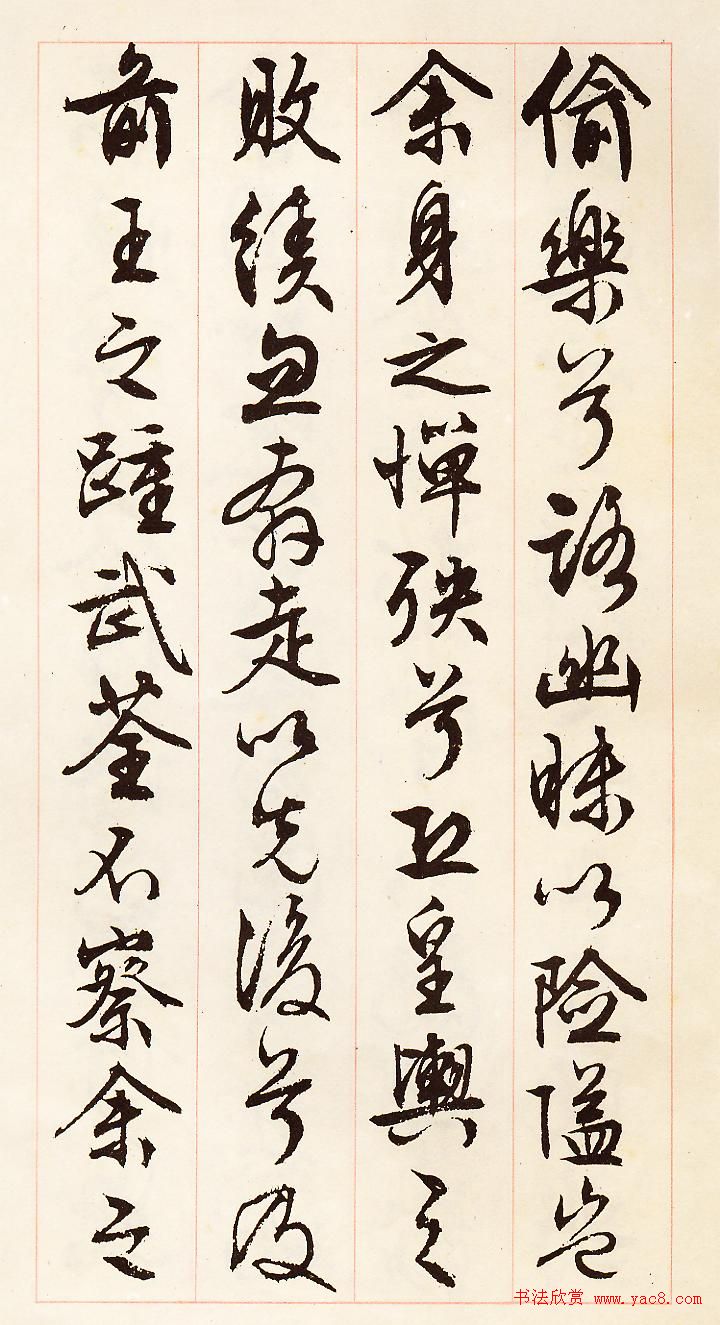 偷樂兮路幽昧以險隘豈
余身之憚殃兮恐皇輿之
敗績忽奔走以先後兮及
前王之踵武荃不察余之
书法欣赏 www.yac8.com